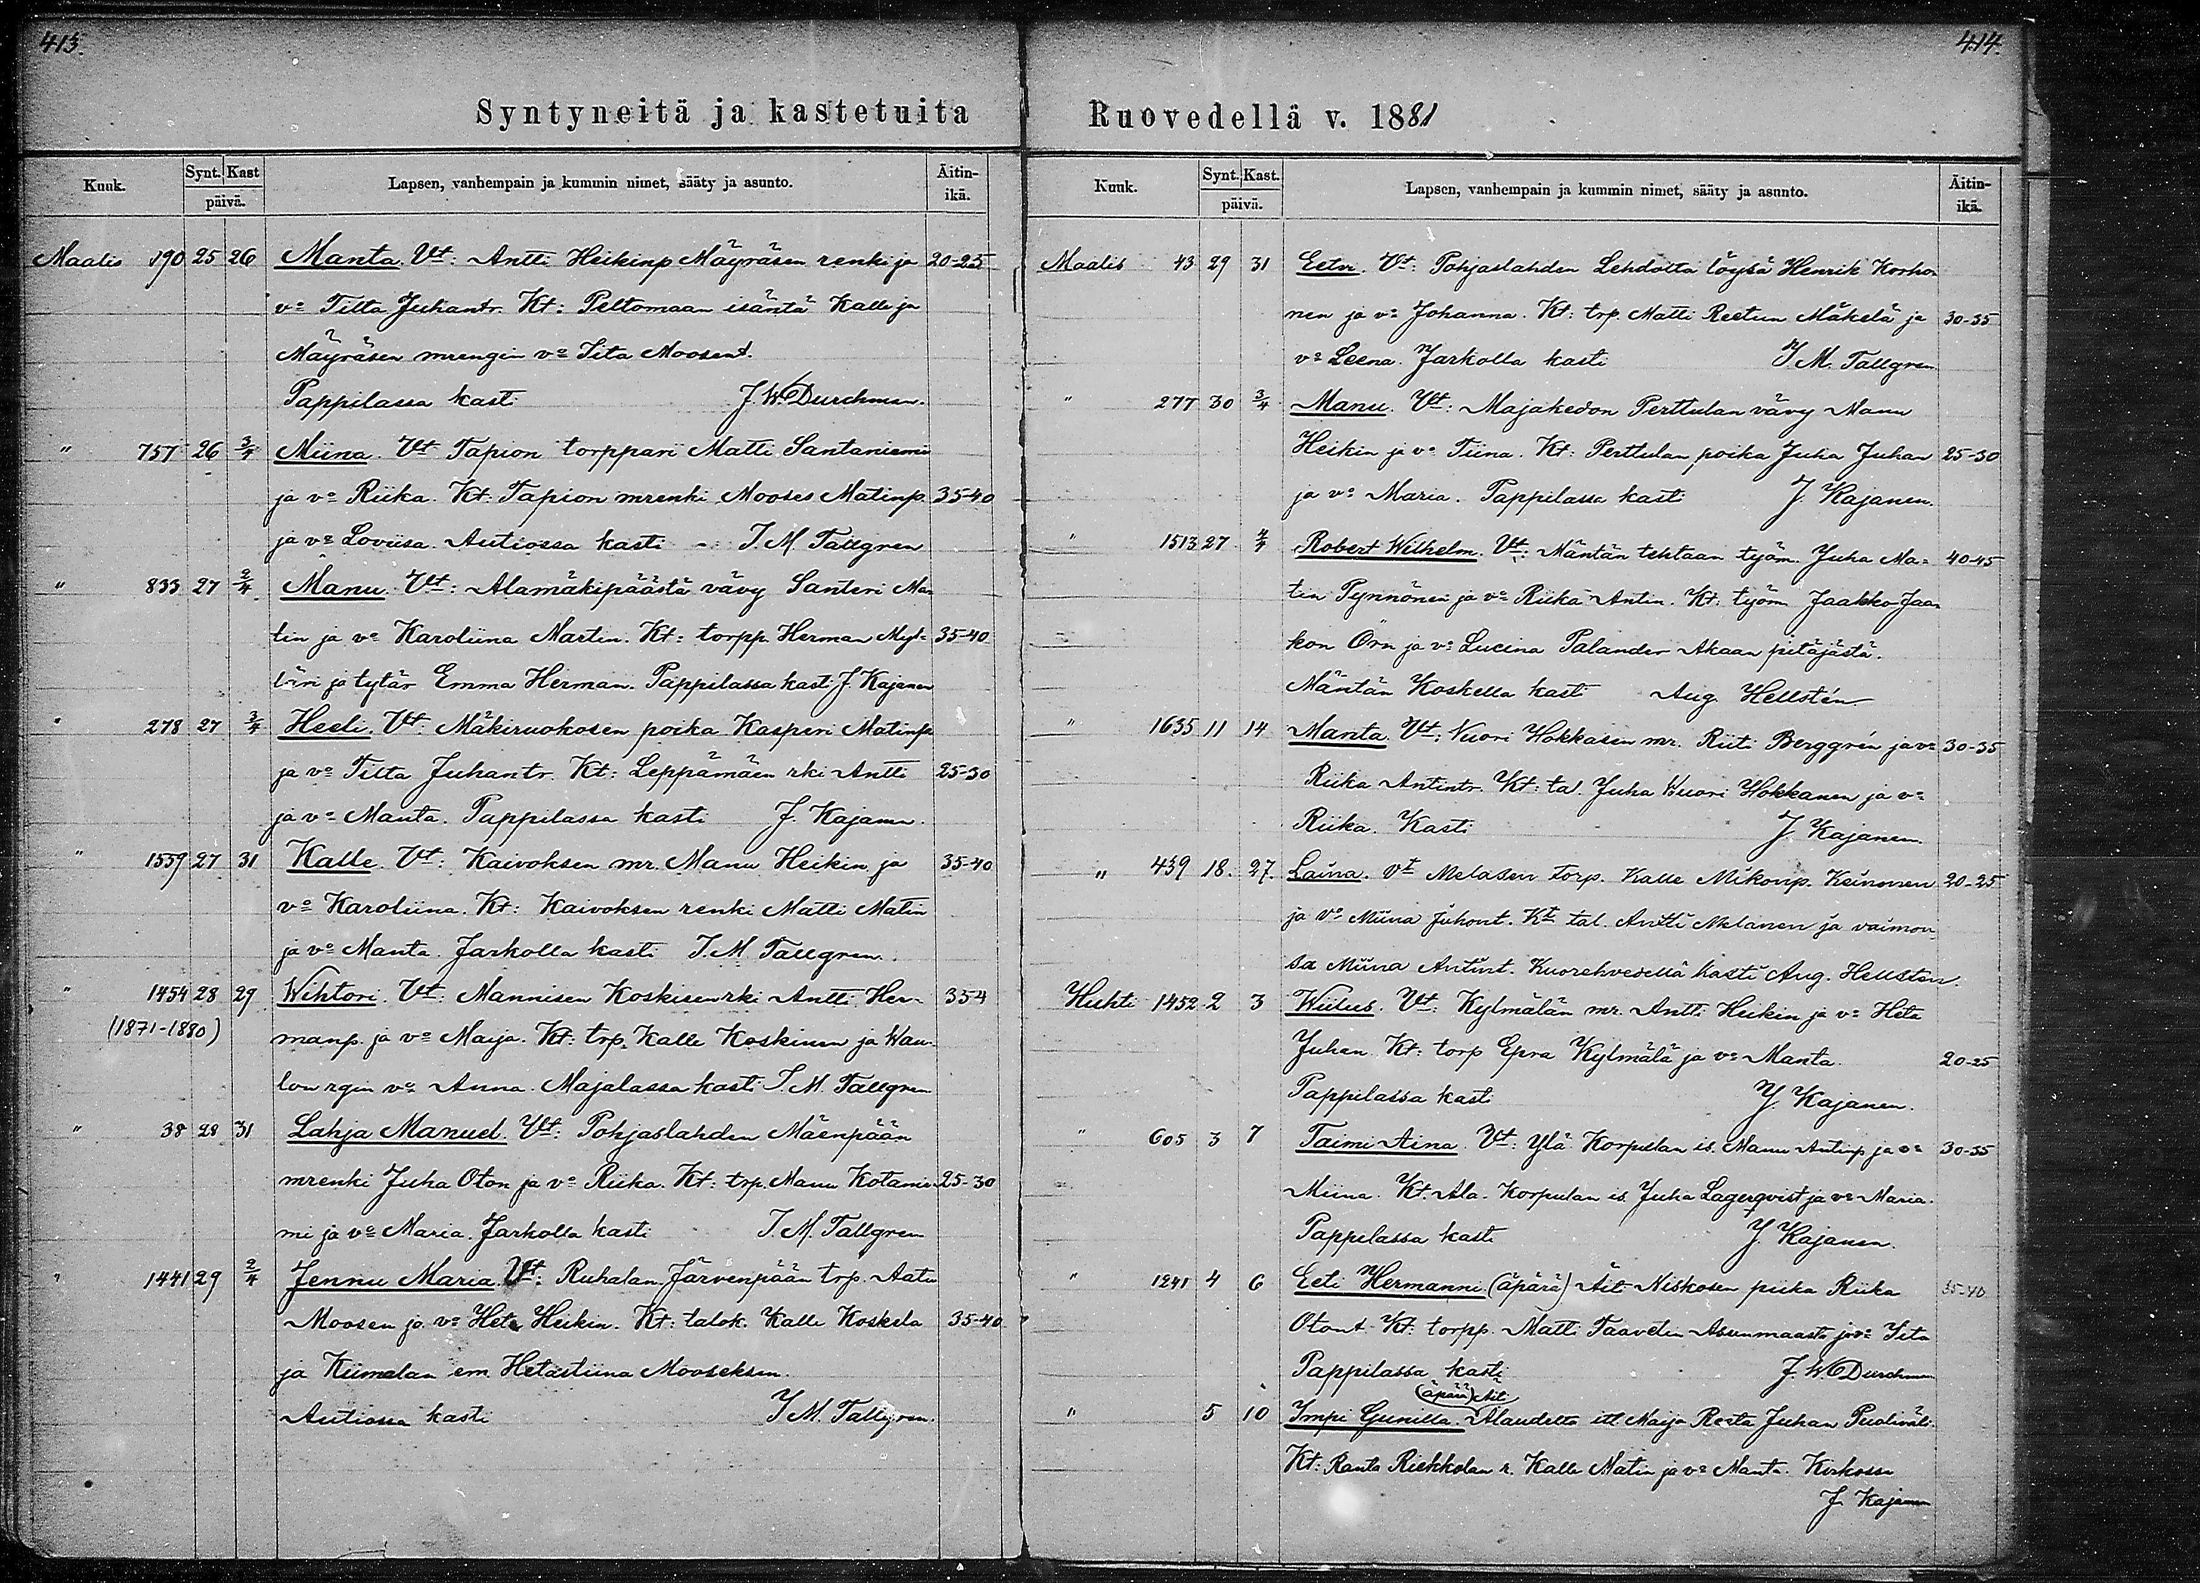 413.
Syntyneitä ja kastetuita
Kuuk.
Synt. Kast
päivä.
Lapsen, vanhempain ja kummin nimet, sääty ja asunto.
Äitin-
ikä.
Maalis 190 25 26 Manta. Vt: Antti Heikinp Mäyräsen renki ja 20-25
vo Tilta Juhantr. Kt: Peltomaan isäntä Kalle ja
Mäyräsen mrengin vo Iita Moosent.
Pappilassa kasti J. W. Durchman.
" 757 26 3/4 Miina. Vt Tapion torppari Matti Santaniemi
ja vo Riika. Kt: Tapion mrenki Mooses Matinp 35-40
ja vo Loviisa. Autiossa kasti - I. M. Tallgren
" 833 27 2/4 Manu. Vt: Alamäkipäästä vävy Santeri Ma-
tin ja vo Karoliina Martin. Kt: torpp. Herman Myl- 35-40
läri ja tytär Emma Herman. Pappilassa kasti J. Kajanen
" 278 27 3/4 Heeli. Vt: Mäkiruokosen poika Kasperi Matinp
ja vo Tilta Juhantr. Kt: Leppämäen rki Antti 25-30
ja vo Manta. Pappilassa kasti J. Kajanen.
" 1559 27 31 Kalle. Vt: Kaivoksen mr. Manu Heikin ja 35-40
vo Karoliina. Kt: Kaivoksen renki Matti Matin
ja vo Manta. Jarkolla kasti I. M. Tallgren.
" 1454 28 29 Wihtori. Vt: Mannisen Koskisen rki Antti Her- 354
(1871-1880) manp. ja vo Maija. Kt: trp. Kalle Koskinen ja Wau-
lon rgin vo Anna. Majalassa kasti I. M. Tallgren
" 38 28 31 Lahja Manuel. Vt: Pohjaslahden Mäenpään
mrenki Juha Oton ja vo Riika. Kt: trp. Manu Kotanie- 25-30
mi ja vo Maria. Jarkolla kasti I. M. Tallgren
" 1441 29 2/4 Jennu Maria. Vt: Ruhalan Järvenpään trp. Aatu
Moosen ja vo Heta Heikin. Kt: talok. Kalle Koskela 35-40
ja Kiimelan em. Hetastiina Mooseksen.
Autiossa kasti I. M. Tallgren.
414.
Ruovedellä v. 1881
Kuuk.
Synt. Kast.
päivä.
Lapsen, vanhempain ja kummin nimet, sääty ja asunto.
Äitin-
ikä.
Maalis 43 29 31 Eetu. Vt: Pohjaslahden Lehdolta löysä Henrik Korho-
nen ja vo Johanna. Kt: trp. Matti Reetun Mäkelä ja 30-35
vo Leena. Jarkolla kasti I. M. Tallgren
" 277 30 3/4 Manu. Vt: Majakedon Perttulan vävy Manu
Heikin ja vo Tiina. Kt: Perttulan poika Juha Juhan 25-30
ja vo Maria. Pappilassa kasti J. Kajanen.
" 1513 27 4/4 Robert Wilhelm. Vt: Mäntän tehtaan työm. Juha Ma- 40-45
tin Pynnönen ja vo Riika Antin. Kt: työm Jaakko Jaa-
kon Örn ja vo Lucina Palander Akaan pitäjästä.
Mäntän Koskella kasti Aug. Hellstén
" 1635 11 14 Manta. Vt: Vuori Hokkasen mr. Riiti Berggrén ja vo 30-35
Riika Antintr. Kt: tal. Juha Wuori Hokkanen ja vo
Riika. Kasti J. Kajanen
" 439 18. 27. Laina. Vt Melasen torp. Kalle Mikonp. Keinonen 20-25
ja vo Miina Juhont. Kt tal. Antti Melanen ja vaimon-
sa Miina Antint. Kuorehvedellä kasti Aug. Hellsten.
Huhti 1452 2 3 Wiilus. Vt: Kylmälän mr. Antti Heikin ja vo Heta
Juhan. Kt: torp Epra Kylmälä ja vo Manta. 20-25
Pappilassa kasti J. Kajanen.
" 605 3 7 Taimi Aina. Vt: Ylä Korpulan is. Manu Antinp ja vo 30-35
Miina. Kt. Ala-Korpulan is. Juha Lagerqvist ja vo Maria.
Pappilassa kasti J. Kajanen.
" 1241 4 6 Eeti Hermanni (äpärä) Äit. Niskosen piika Riika 35-40
Otont Kt: torpp. Matti Taavetin Asunmaasta ja vo Iita
Pappilassa kasti J. W. Durchman
(äpärä) Äit
" 5 10 Impi Gunilla. Alaudelta itl Maija Reeta Juhan Puoliväli.
Kt: Ranta Riekkolan r. Kalle Matin ja vo Manta. Kirkossa
J. Kajanen